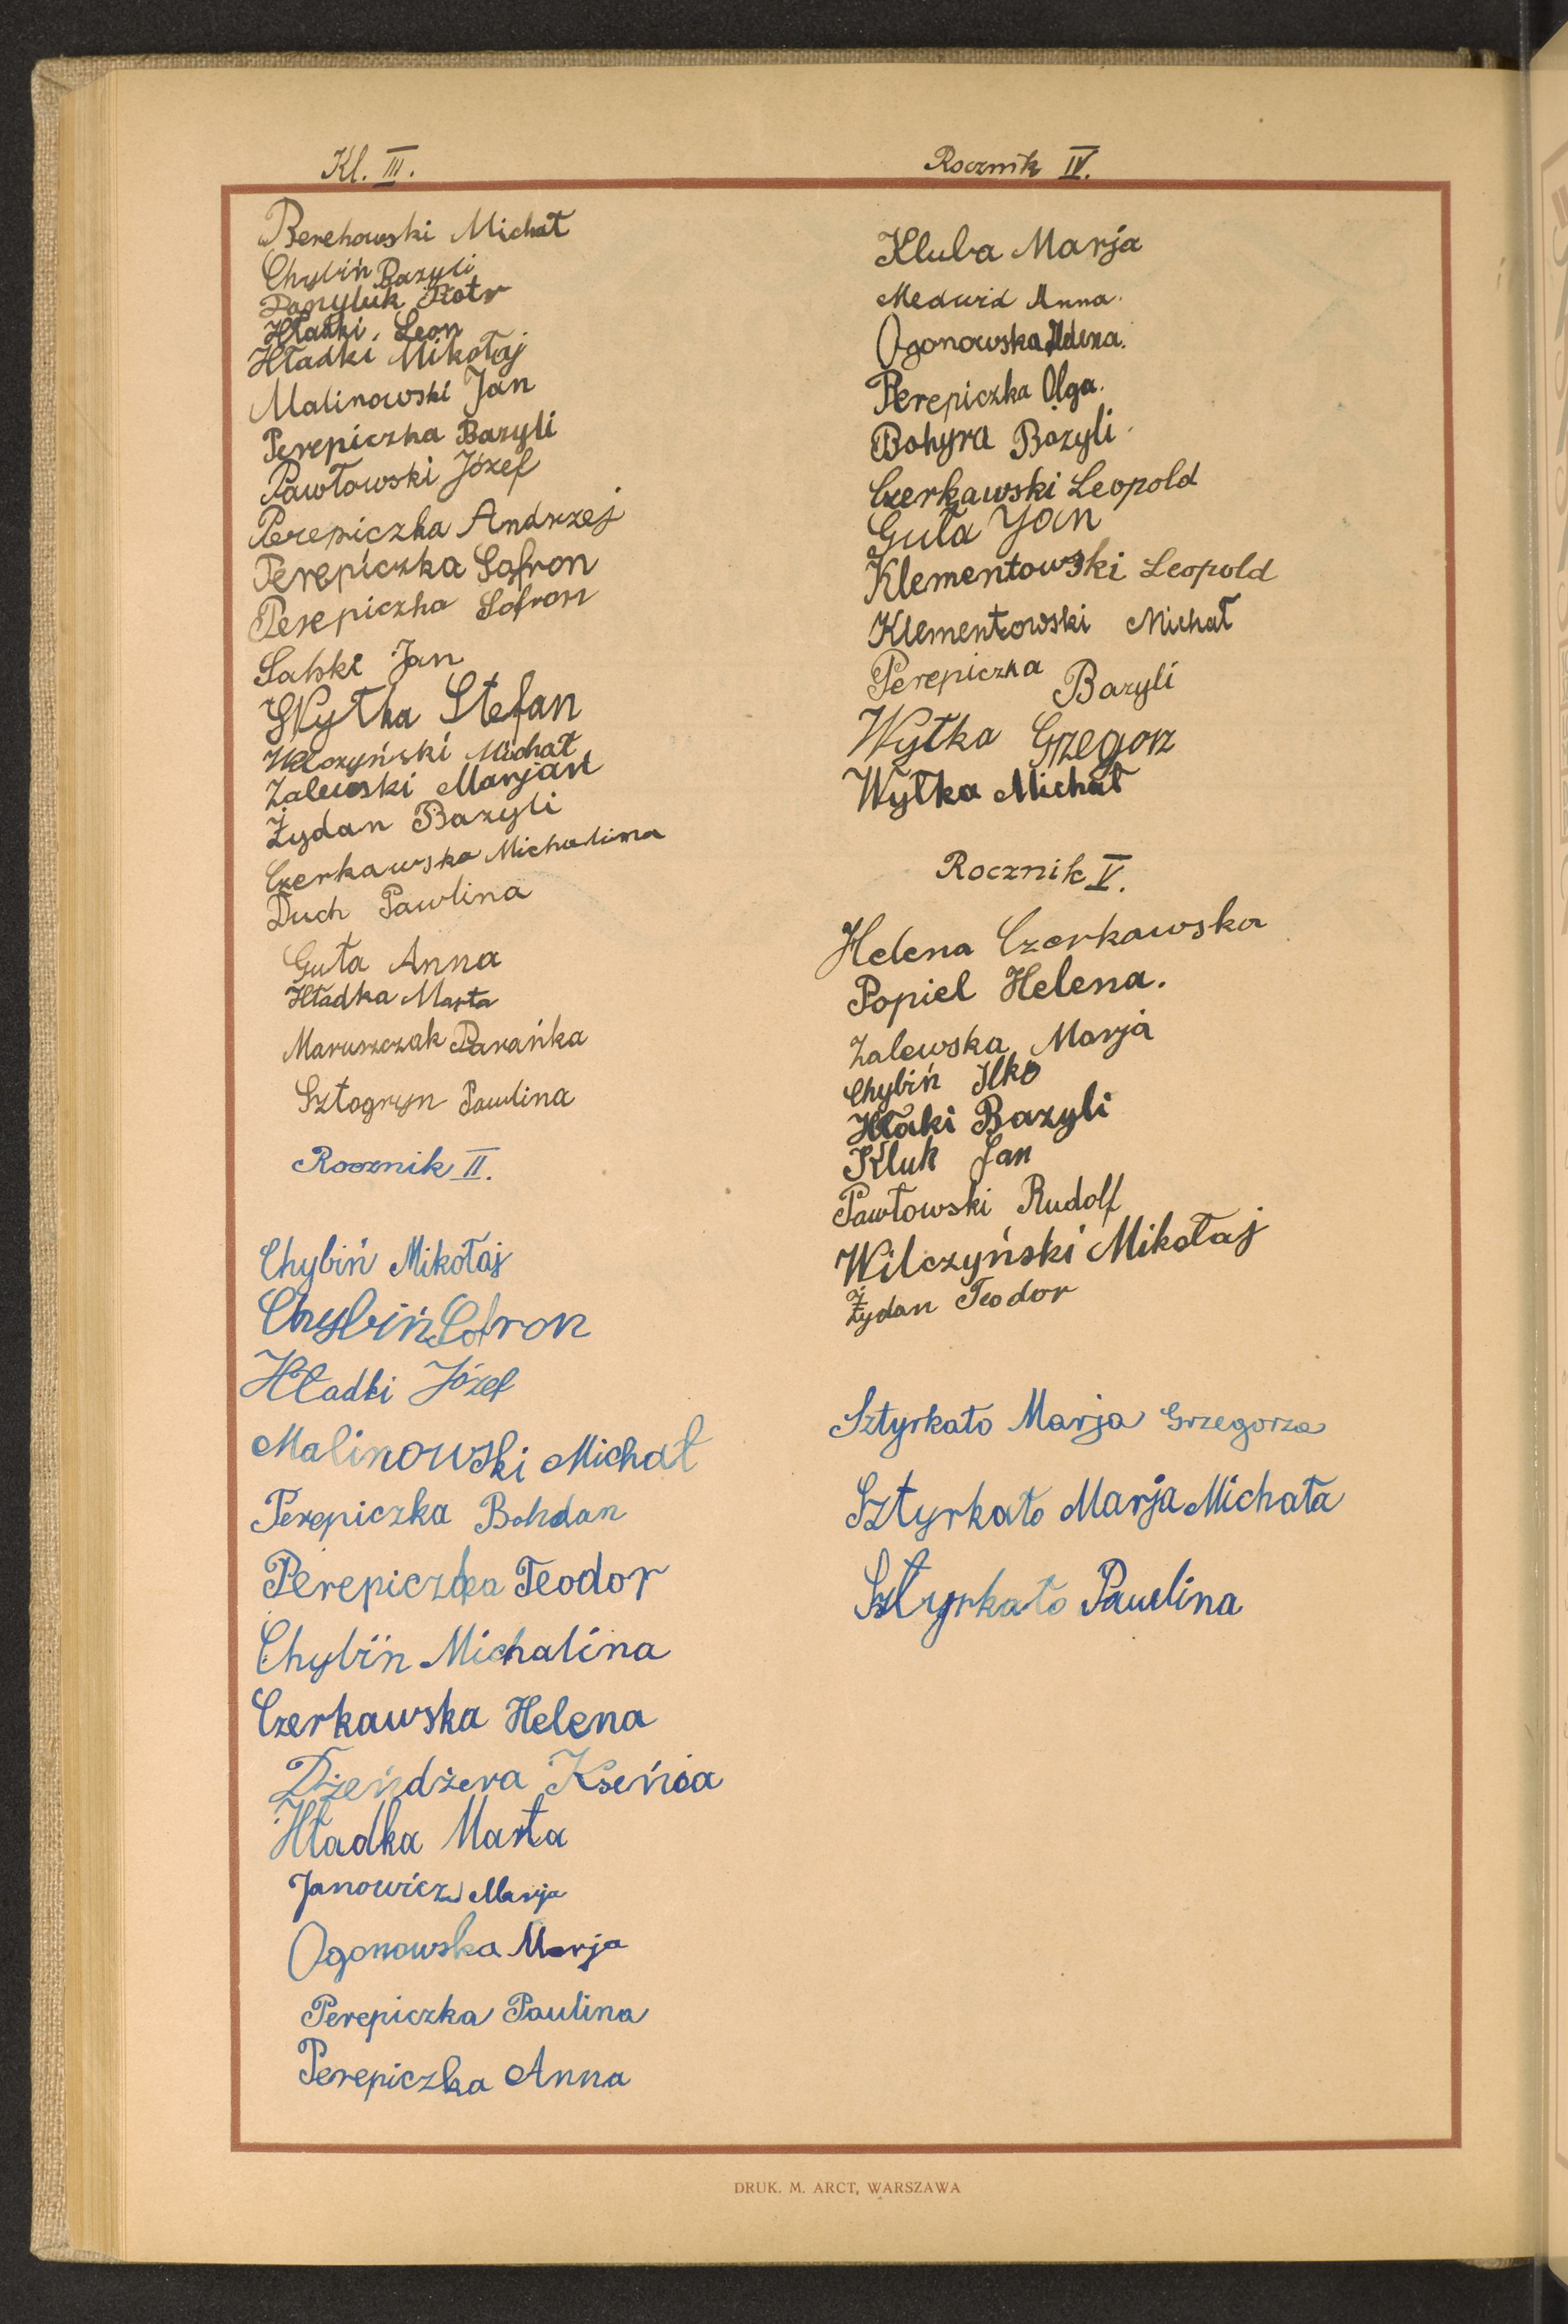 Kl. III.
Berehowski Michał
Chybiń Bazyli
Danyluk Piotr
Hładki, Leon
Hładki Mikołaj
Malinowski Jan
Perepiczka Bazyli
Pawłowski Józef
Perepiczka Andrzej
Perepiczka Sofron
Perepiczka Sofron
Salski Jan
Wytka Stefan
Wilczyński Michał
Zalewski Marjan
Żydan Bazyli
Czerkawska Michalina
Duch Pawlina
Guła Anna
Hładka Marta
Maruszczak Parańka
Sztogryn Pawlina
Rocznik II.
Chybiń Mikołaj
Chybiń Sofron
Hładki Józef
Malinowski Michał
Perepiczka Bohdan
Perepiczka Teodor
Chybiń Michalina
Czerkawska Helena
Dżeńdżera Kseńia
Hładka Marta
Janowicz Marja
Ogonowska Marja
Perepiczka Paulina
Perepiczka Anna
Rocznik IV.
Kluba Marja
Medwid Anna.
Ogonowska
Perepiczka Olga.
Bohyra Bazyli.
Czerkawski Leopold
Guła Jan
Klementowski Leopold
Klementowski Michał
Perepiczka Bazyli
Wytka Grzegorz
Wytka Michał
Rocznik V.
Helena Czerkawska
Popiel Helena.
Zalewska Marja
Chybiń Ilko
Hłaki Bazyli
Kluk Jan
Pawłowski Rudolf
Wilczyński Mikołaj
Żydan Teodor
Sztyrkało Marja Grzegorza
Sztyrkało Marja Michała
Sztyrkało Pawlina
DRUK. M. ARCT, WARSZAWA